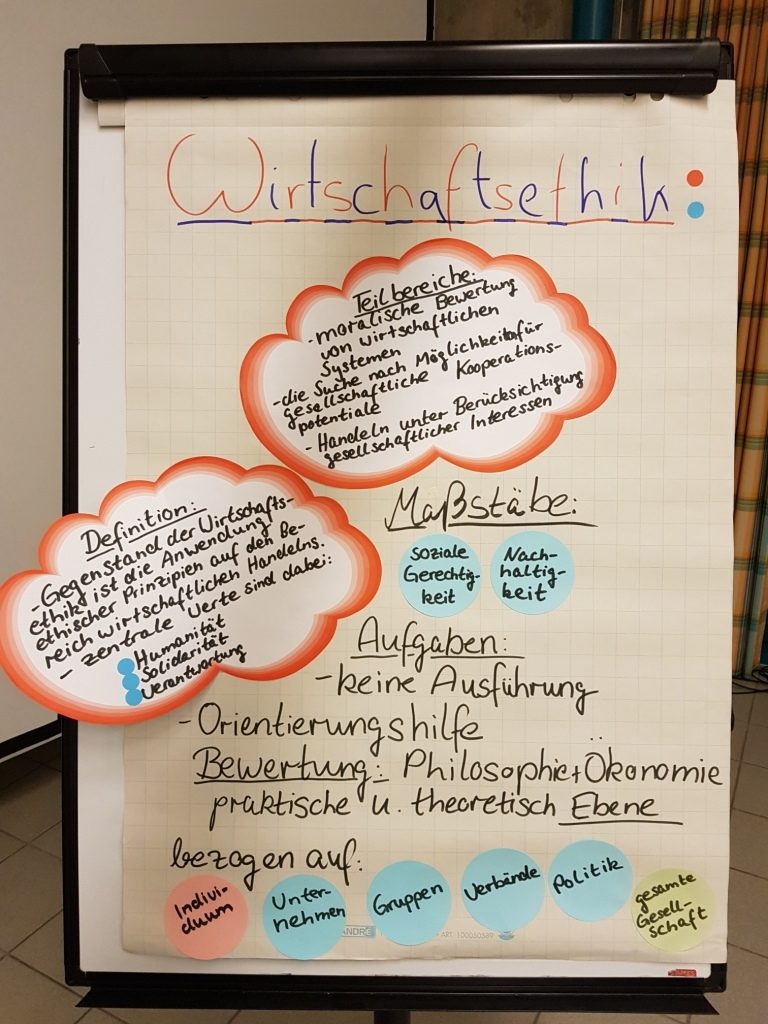 Wirtschaftsethik:
Teilbereiche:
- moralische Bewertung
von wirtschaftlichen
Systemen
- die Suche nach Möglichkeiten für
gesellschaftliche Kooperations-
potentiale
- Handeln unter Berücksichtigung
gesellschaftlicher Interessen
Definition:
- Gegenstand der Wirtschafts-
ethik ist die Anwendung
ethischer Prinzipien auf den Be-
reich wirtschaftlichen Handelns.
- zentrale Werte sind dabei:
Humanität
Solidarität
Verantwortung
Maßstäbe:
Soziale
Gerechtig-
keit
Nach-
haltig-
keit
Aufgaben:
- keine Ausführung
- Orientierungshilfe
Bewertung: Philosophie + Ökonomie
praktische u. theoretisch Ebene
bezogen auf:
Indivi-
duum
Unter-
nehmen
Gruppen
Verbände
Politik
gesamte
Gesell-
schaft
ART. 100050589